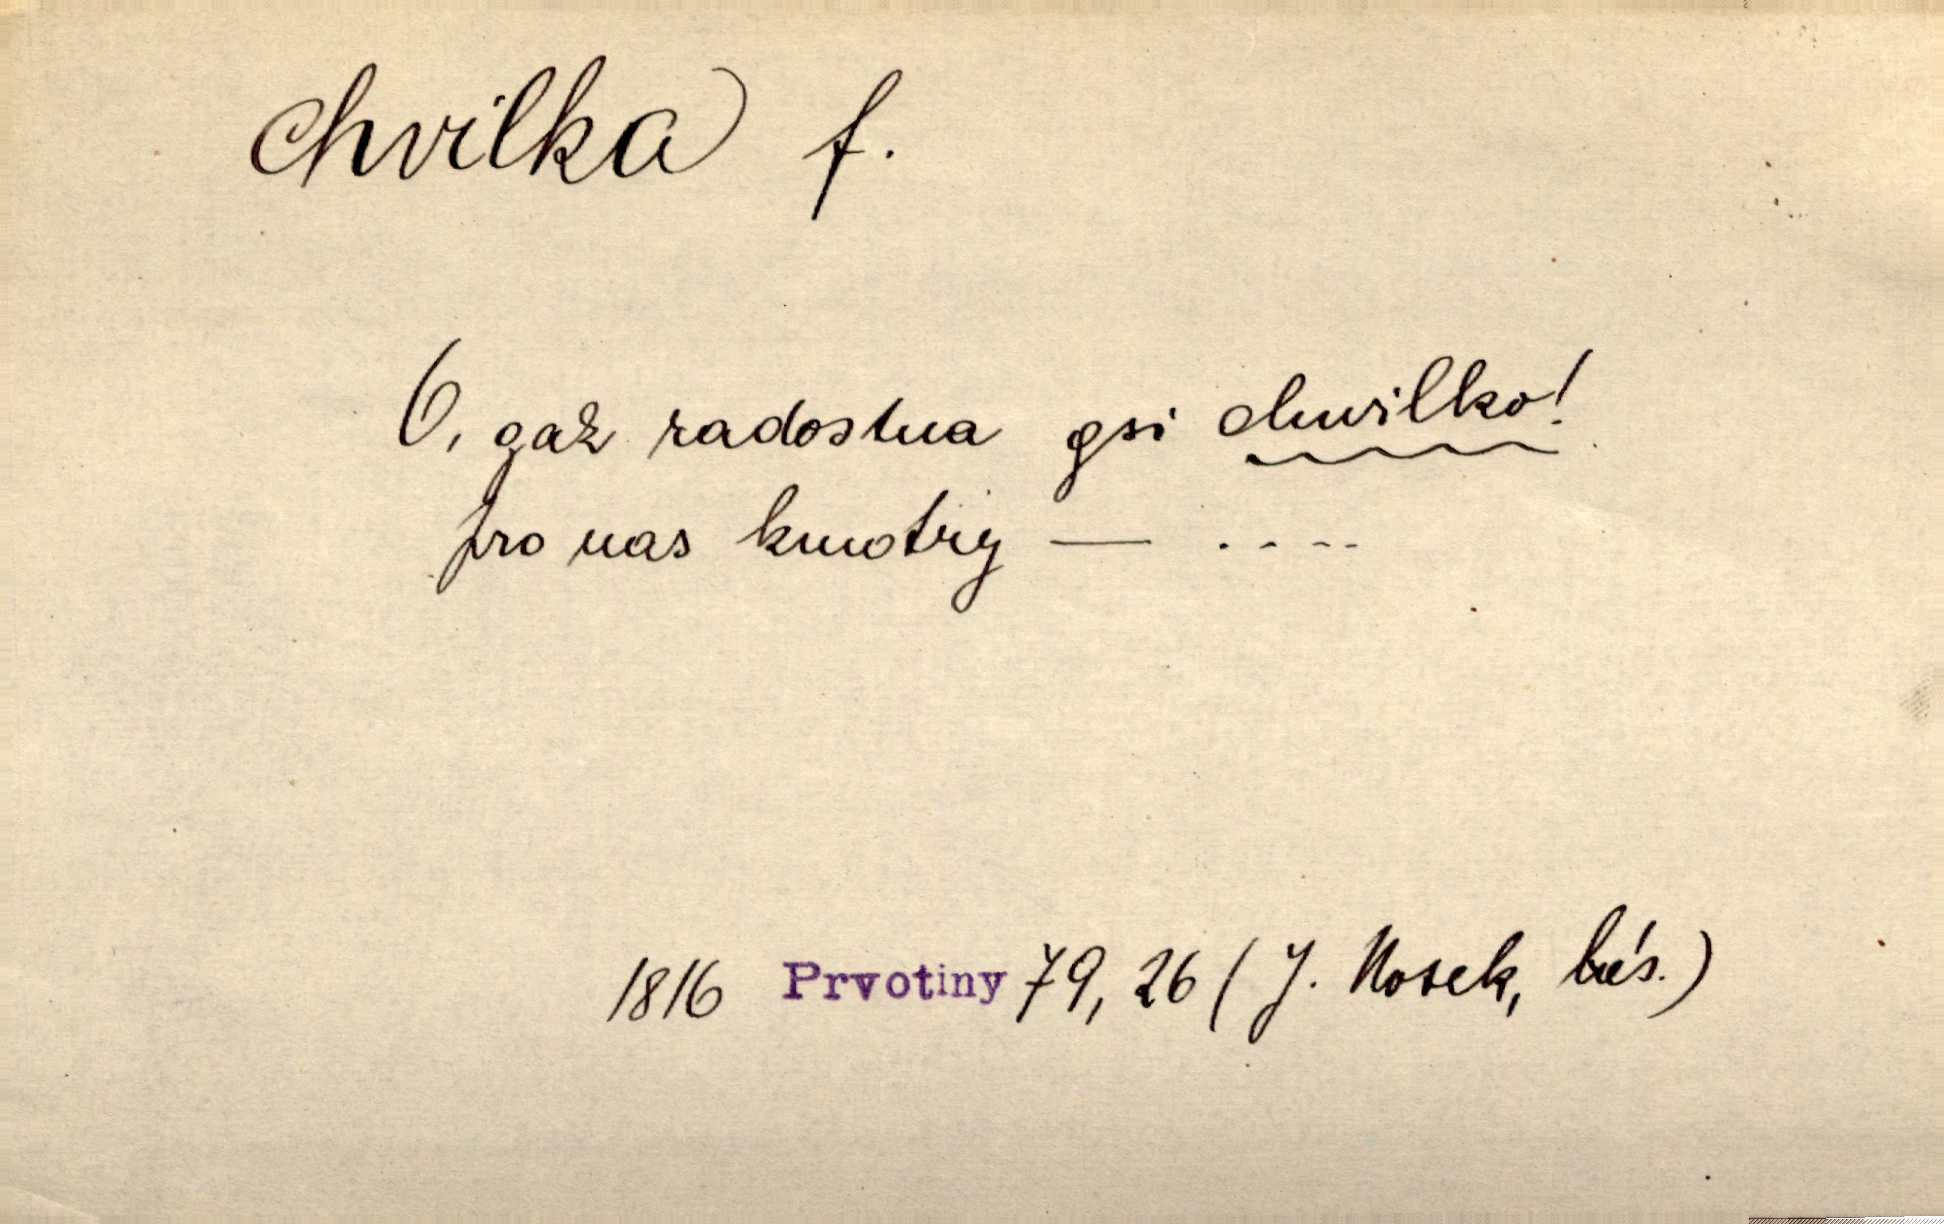 chvilka f.
O, gaž radostna gsi chwilko!
pro nas kmotry — . . . .
1816 Prvotiny 79, 26 (J. Nosek, bás.)